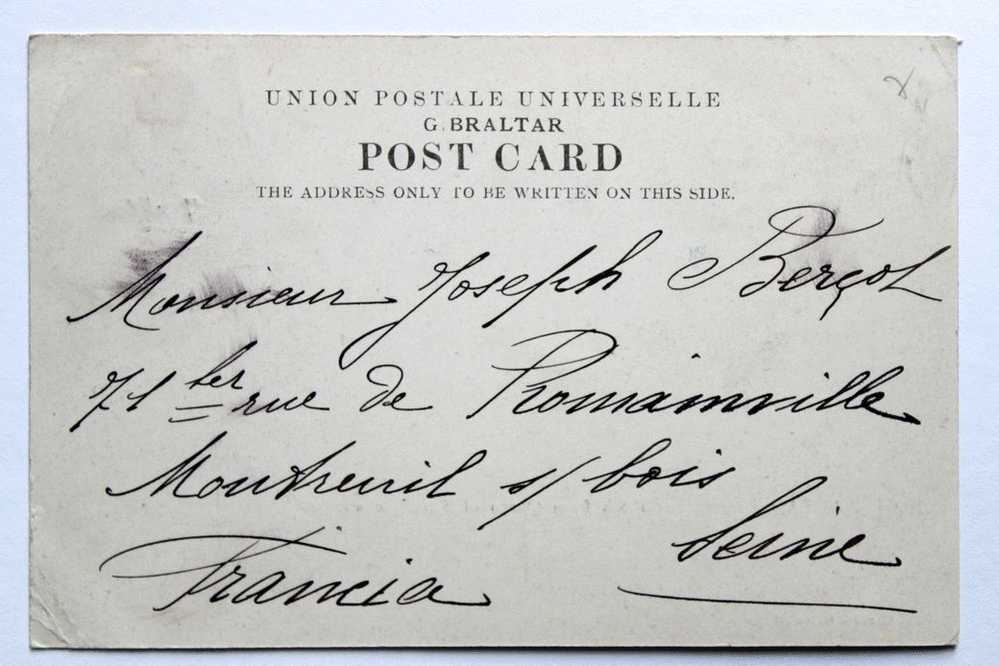 UNION POSTALE UNIVERSELLE
GIBRALTAR
POST CARD
THE ADDRESS ONLY TO BE WRITTEN ON THIS SIDE.
Monsieur Joseph Berçot
71 ter rue de Romainville
Montreuil s/ bois
Seine
Francia